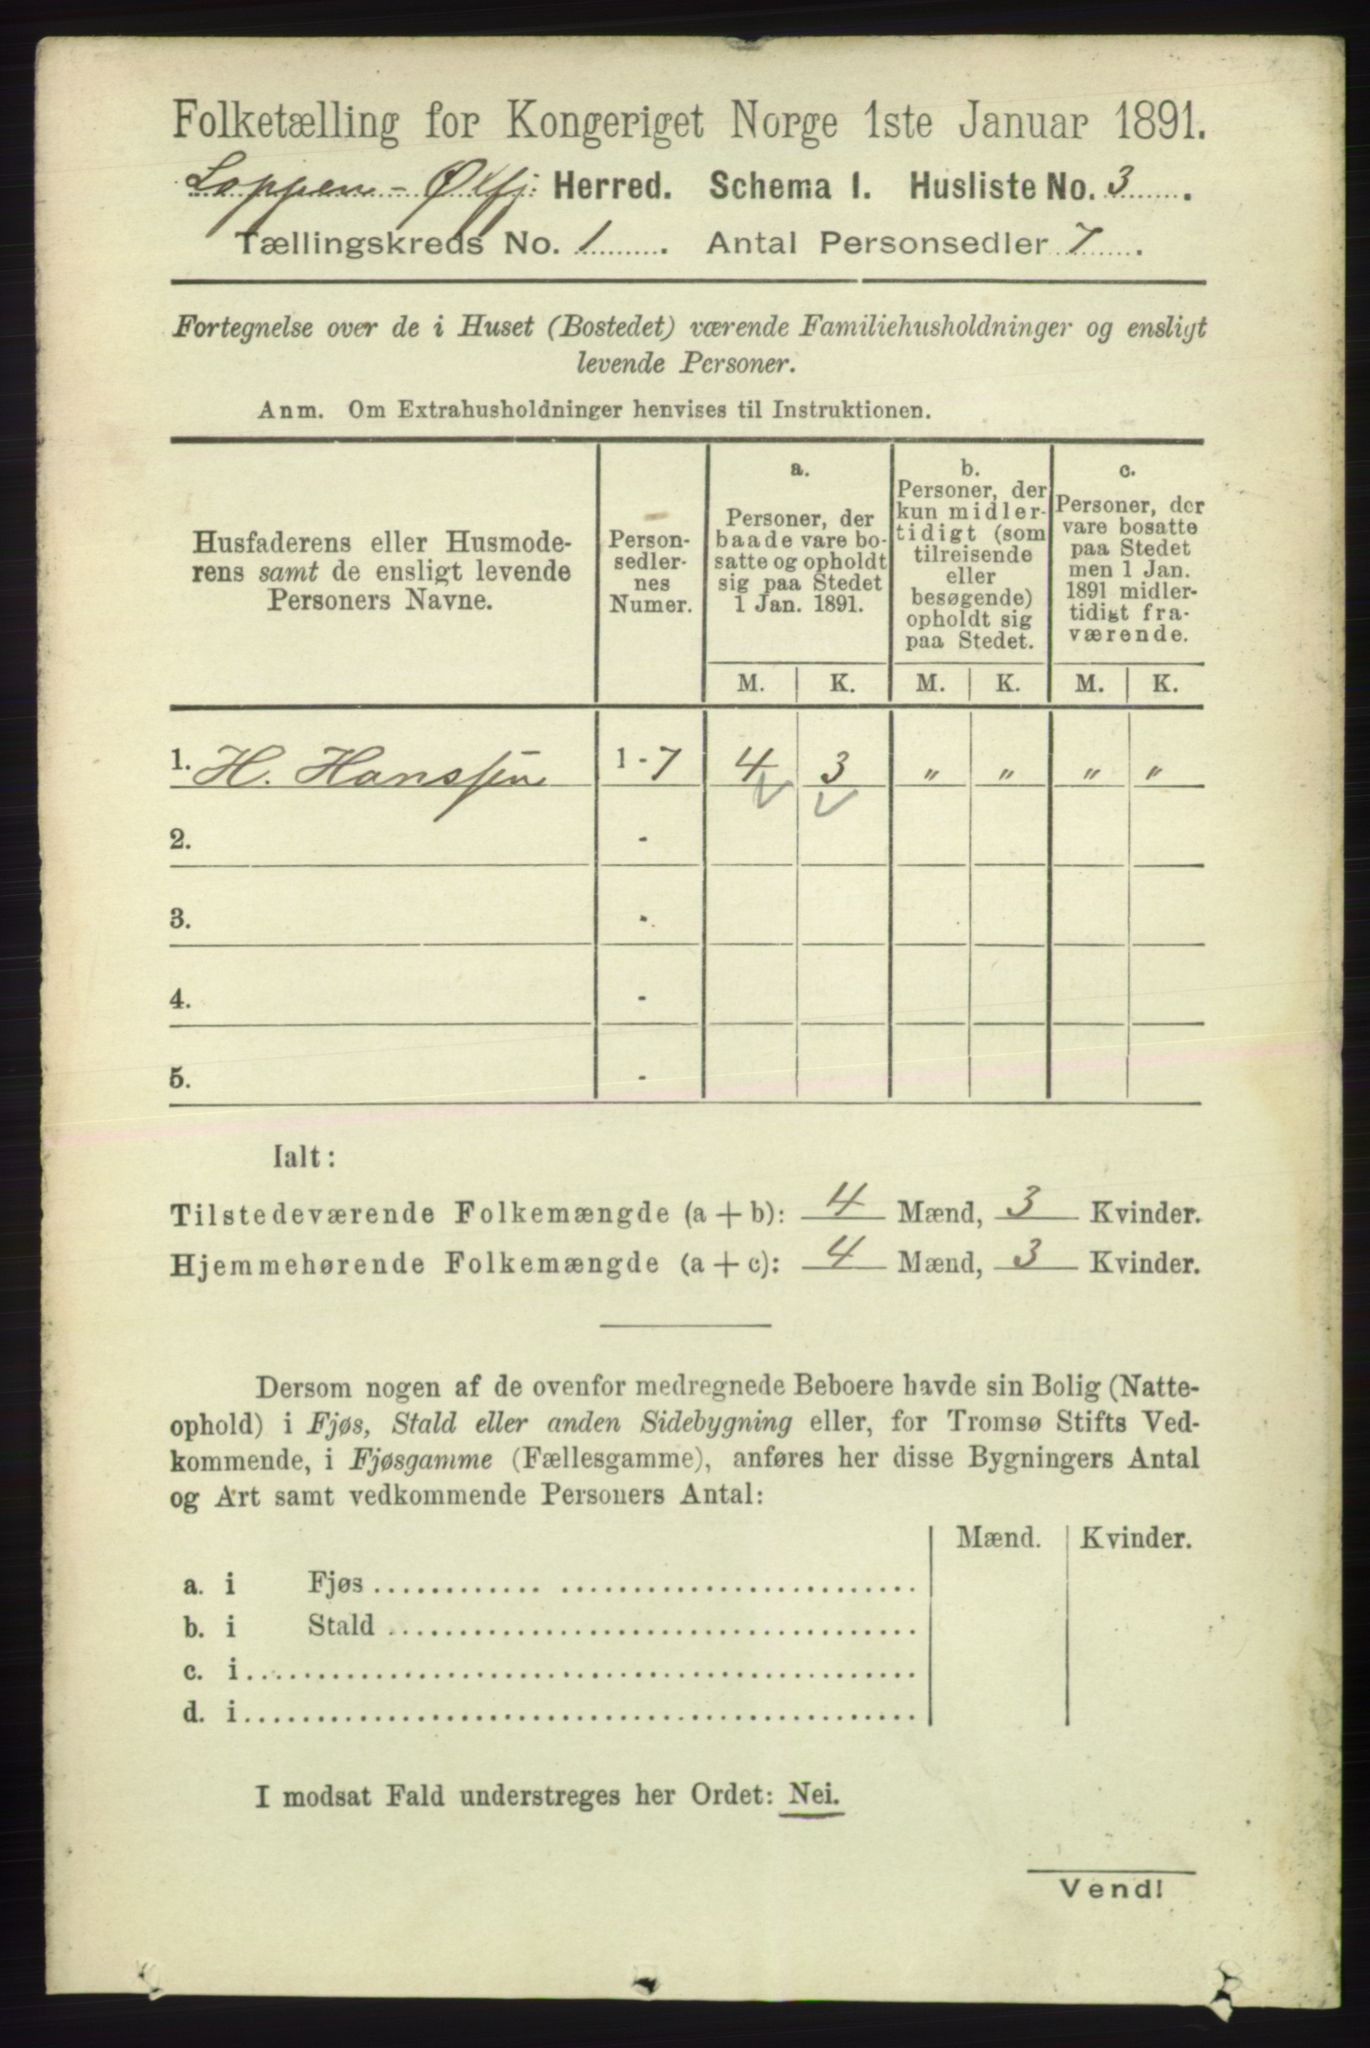 Folketælling for Kongeriget Norge 1ste Januar 1891.
Loppen - Øxfj: Herred. Schema I. Husliste No. 3.
Tællingskreds No. 1. Antal Personsedler 7.
Fortegnelse over de i Huset (Bostedet) værende Familiehusholdninger og ensligt
levende Personer.
Anm. Om Extrahusholdninger henvises til Instruktionen.
Husfaderens eller Husmode-
rens samt de ensligt levende
Personers Navne.
Person-
sedler-
nes
Numer.
a.
Personer, der
baade vare bo-
satte og opholdt
sig paa Stedet
1 Jan. 1891.
b.
Personer, der
kun midler-
tidigt (som
tilreisende
eller
besøgende)
opholdt sig
paa Stedet.
c.
Personer, der
vare bosatte
paa Stedet
men 1 Jan.
1891 midler-
tidigt fra-
værende.
M. K. M. K. M. K.
1. H. Hanssen 1 - 7 4 3 " " " "
2. -
3. -
4. -
5. -
Ialt:
Tilstedeværende Folkemængde (a + b): 4 Mænd, 3 Kvinder.
Hjemmehørende Folkemængde (a + c): 4 Mænd, 3 Kvinder.
Dersom nogen af de ovenfor medregnede Beboere havde sin Bolig (Natte-
ophold) i Fjøs, Stald eller anden Sidebygning eller, for Tromsø Stifts Ved-
kommende, i Fjøsgamme (Fællesgamme), anføres her disse Bygningers Antal
og Art samt vedkommende Personers Antal:
Mænd. Kvinder.
a. i Fjøs
b. i Stald
c. i
d. i
I modsat Fald understreges her Ordet: Nei.
Vend!